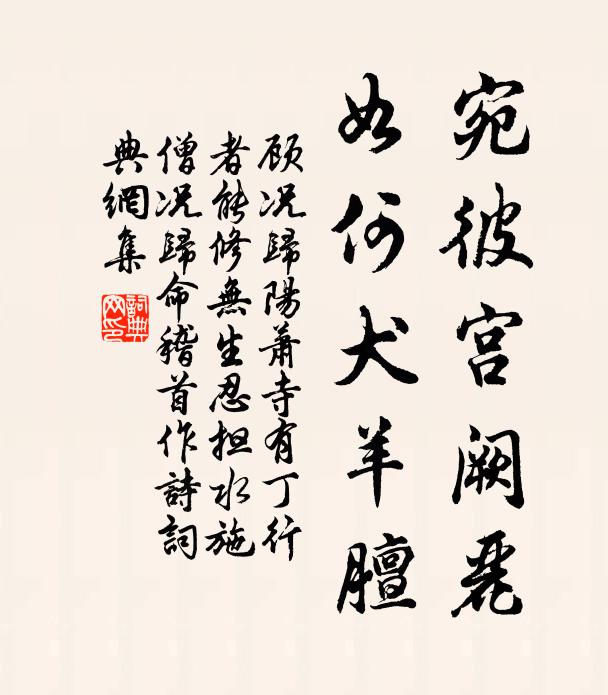 宛彼宫阙麗
如何犬羊膻
顾况歸陽蕭寺有丁行
者能修無生忍担水施
僧况歸命稽首作詩詞
典網集
詞典網印